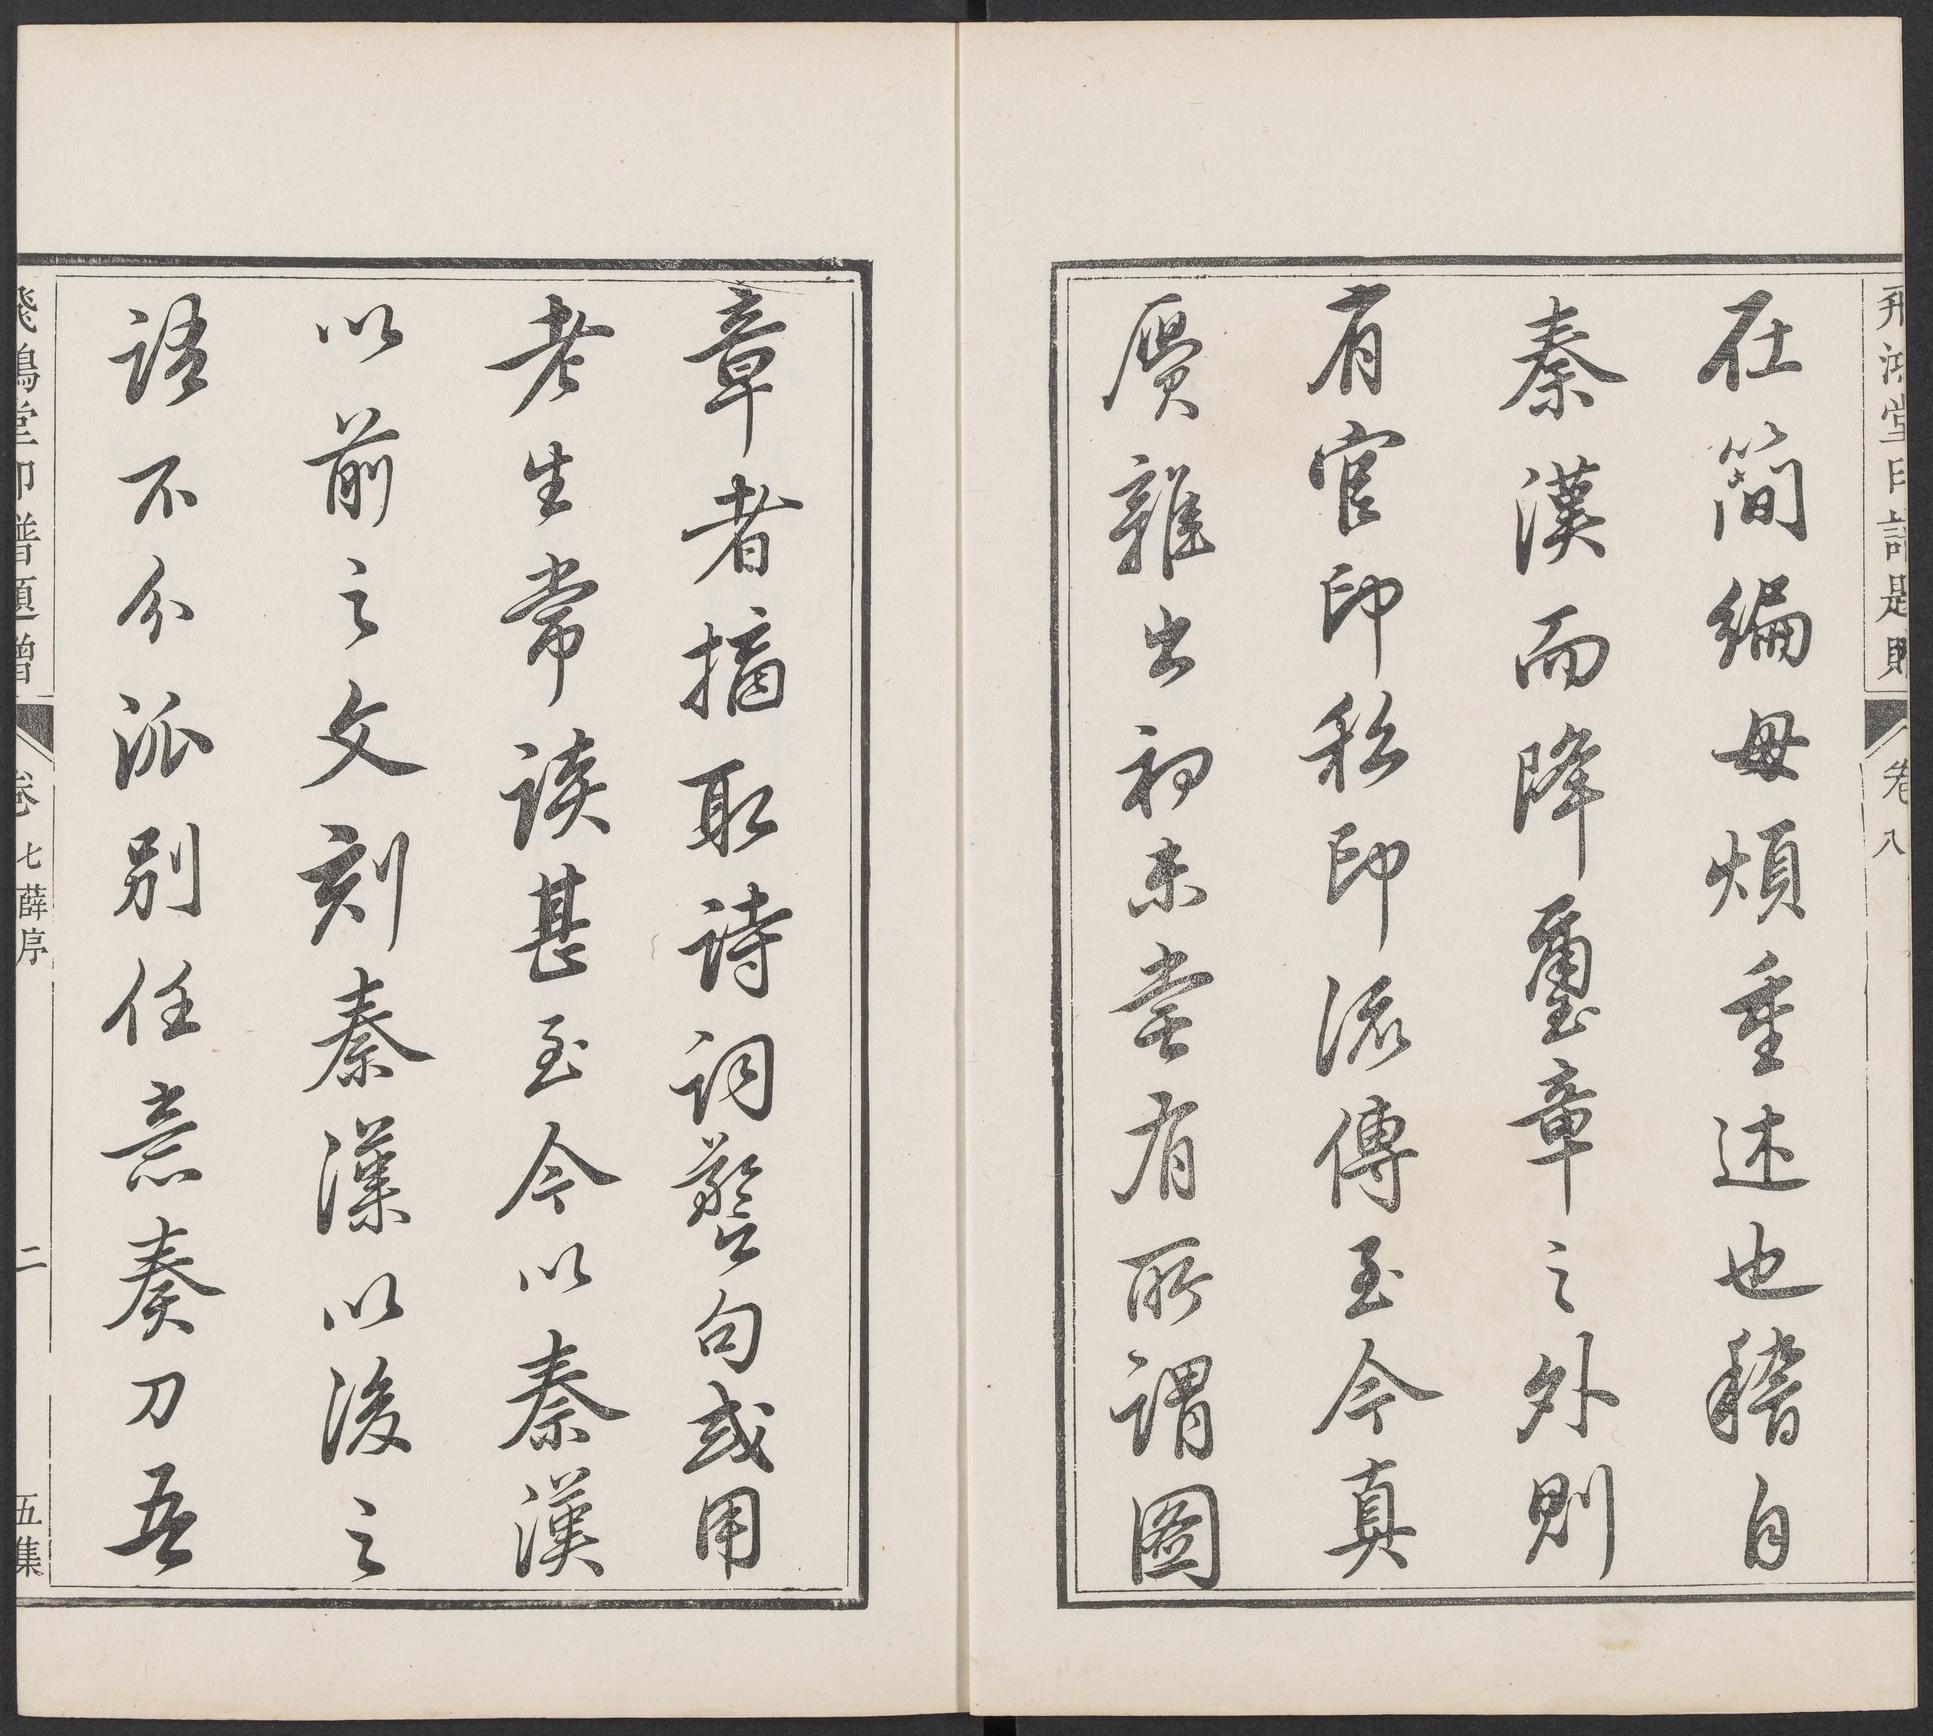 飛鴻堂印譜題贈
卷八
在簡編毋煩重述也稽自
秦漢而降璽章之外則
有官印私印流傳至今真
贋雜出初未嘗有所謂圖
章者摘取詩詞警句或用
老生常談甚至今以秦漢
以前之文刻秦漢以後之
語不分泒别任意奏刀吾
飛鴻堂印譜題贈
卷七薛序
二
五集